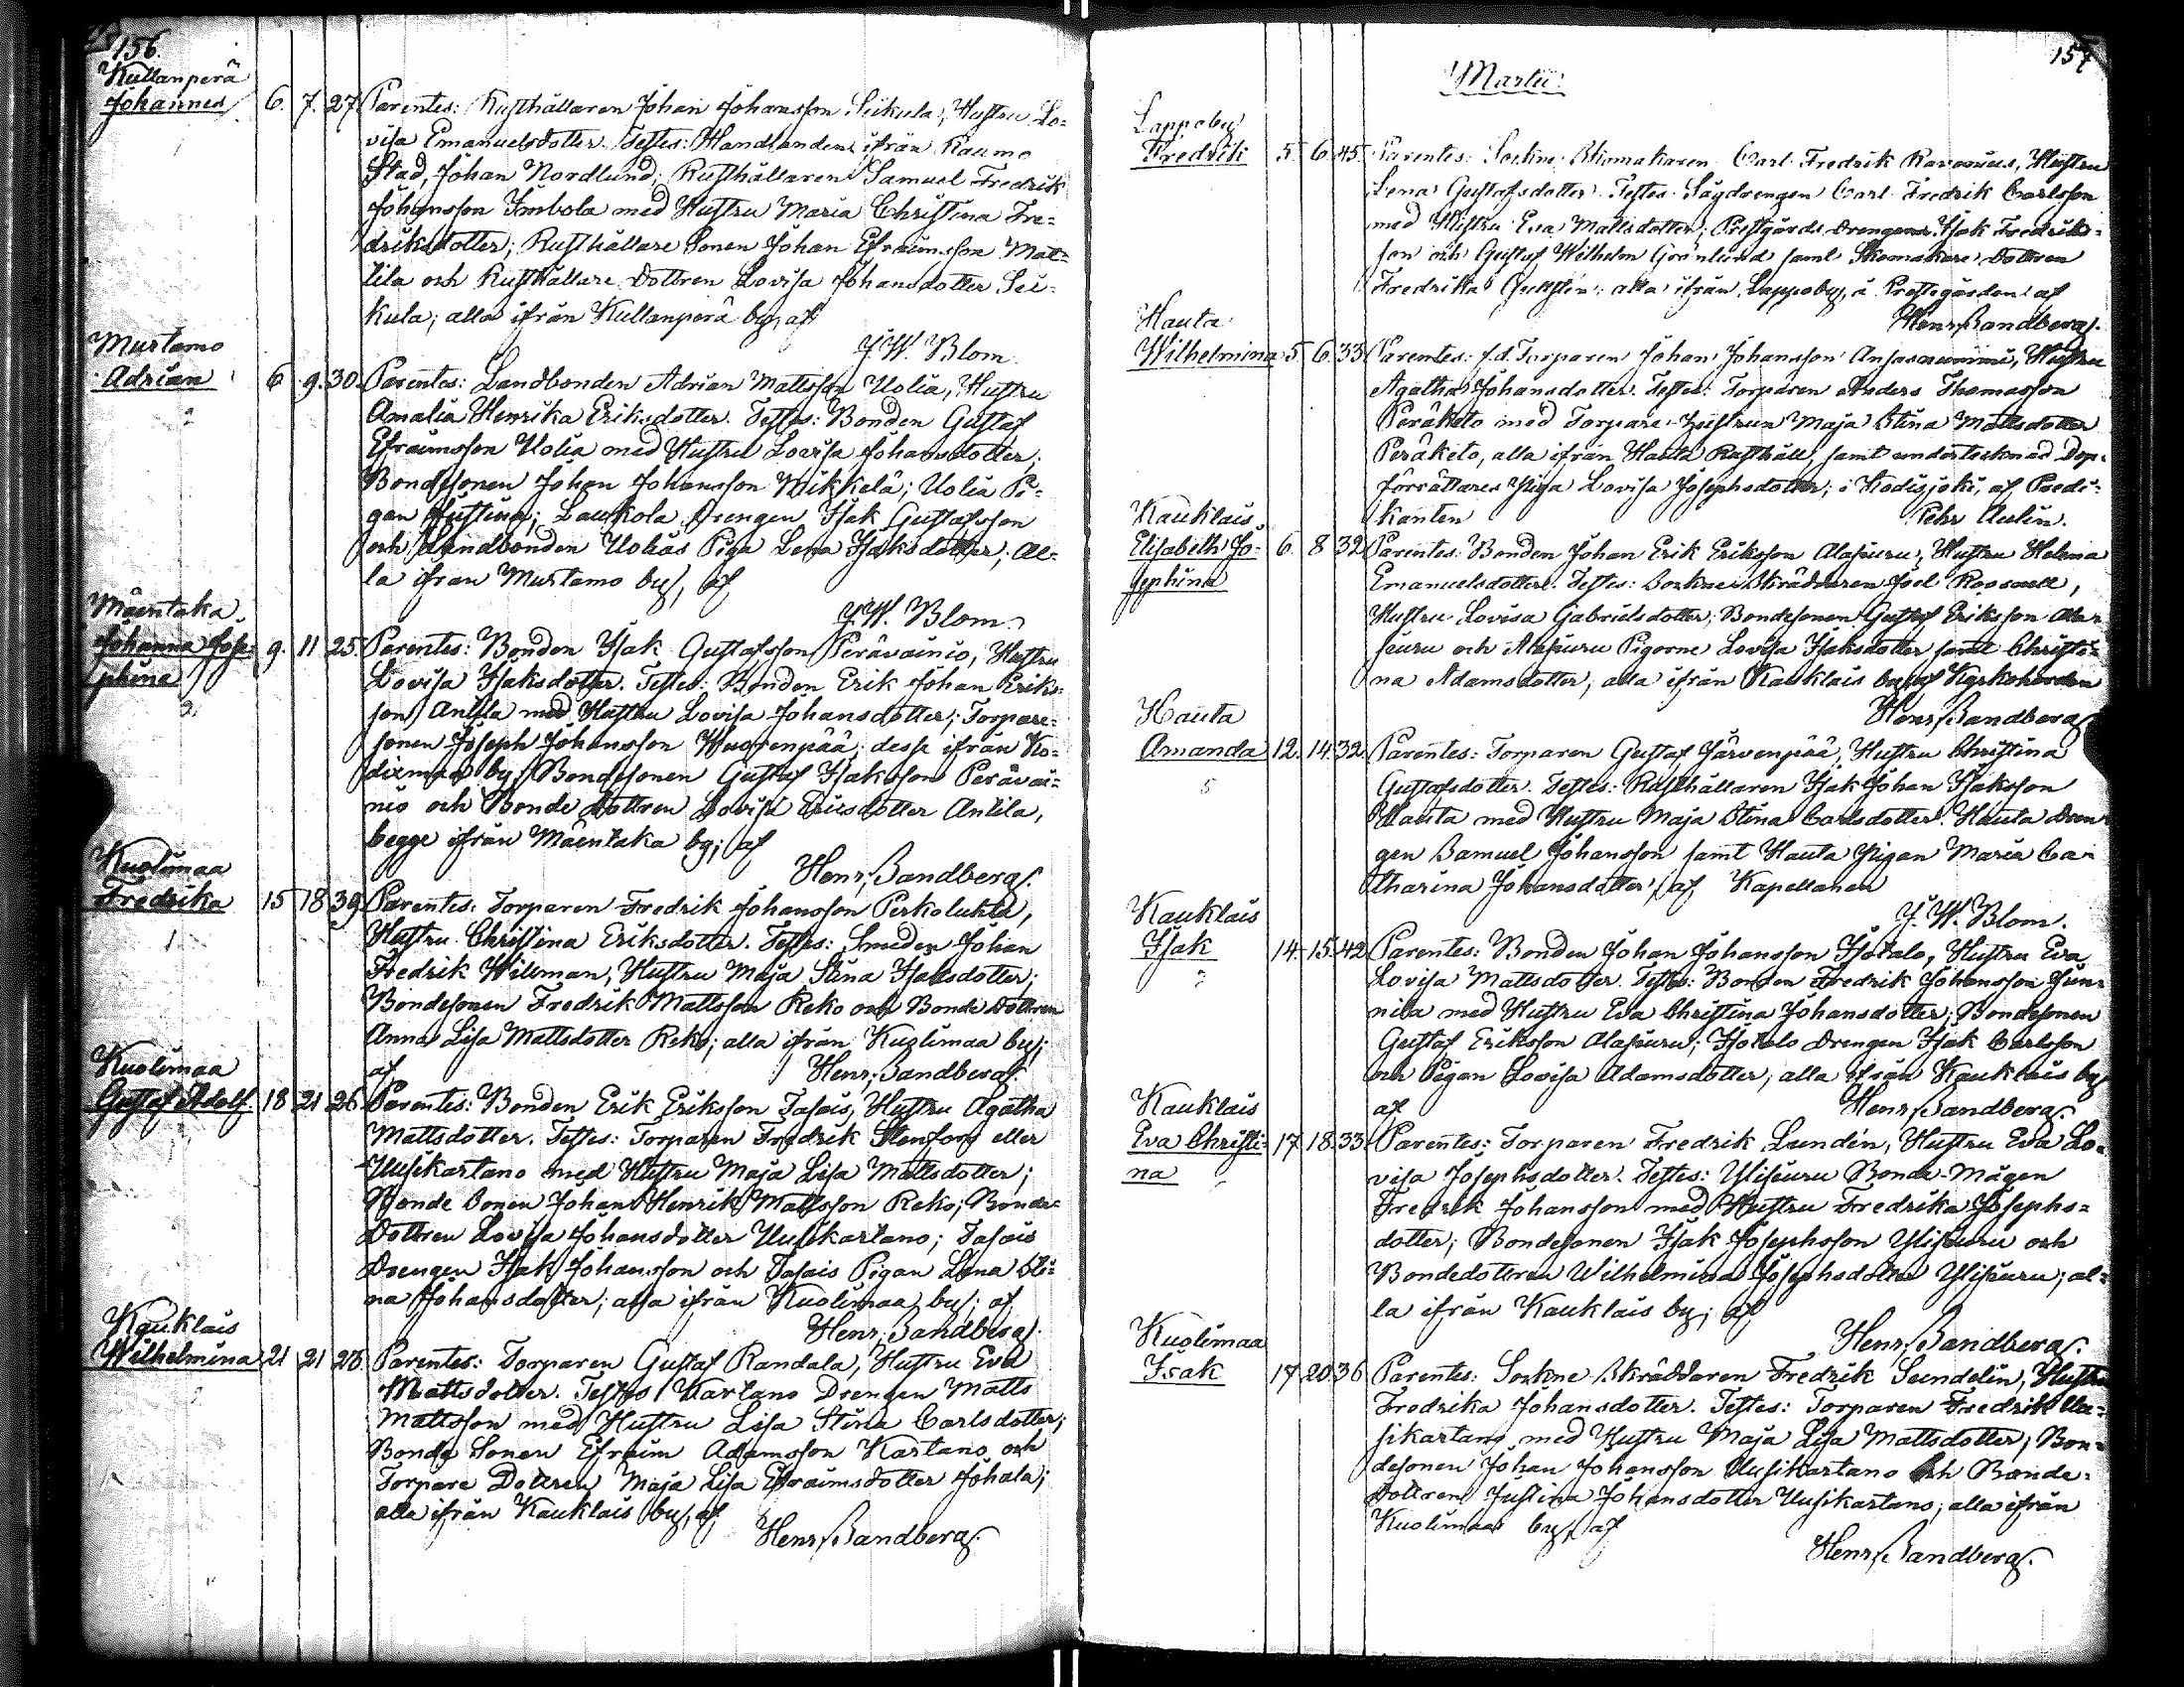 156.
Kullanperä
Johannes 6. 7. 27. Parentes: Rusthållaren Johan Johansson Seikula, Hustru Lo-
visa Emanuelsdotter. Testes: Handlanden ifrån Raumo
Stad, Johan Nordlund; Rusthållaren Samuel Fredrik
Johansson Imbola med Hustru Maria Christina Fre-
driksdotter; Rusthållare Sonen Johan Efraimsson Mat-
tila och Rusthållare Dottren Lovisa Johansdotter Sei-
kula; alla ifrån Kullanperä by, af
J. W. Blom.
Murtamo
Adrian 6 9. 30. Parentes: Landbonden Adrian Mattsson Uolia, Hustru
2 Amalia Henrika Eriksdotter. Testes: Bonden Gustaf
Efraimsson Uolia med Hustru Lovisa Johansdotter;
Bondesonen Johan Johansson Nikkelä; Uolia Pi-
gan Justina; Laukola Drengen Isak Gustafsson
och Landbonden Uolias Piga Lena Isaksdotter; al-
la ifrån Murtamo by, af
J. W. Blom.
Mäentaka
Johanna Jose- 9. 11 25. Parentes: Bonden Isak Gustafsson Perävainio, Hustru
phina Lovisa Isaksdotter. Testes: Bonden Erik Johan Eriks-
2. son Antila med Hustru Lovisa Johansdotter; Torpare-
sonen Joseph Johansson Wuorenpää; desse ifrån Ko-
dixmaa by; Bondesonen Gustaf Isaksson Perävai-
nio och Bonde Dottren Lovisa Ericsdotter Antila,
begge ifrån Mäentaka by; af
Henr. Sandberg.
Kuolimaa
Fredrika 15 18 39. Parentes: Torparen Fredrik Johansson Perkolukta,
1 Hustru Christina Eriksdotter. Testes: Smeden Johan
Fredrik Willman, Hustru Maja Stina Isaksdotter;
Bondesonen Fredrik Mattsson Reko och Bonde Dottren
Anna Lisa Mattsdotter Reko; alla ifrån Kuolimaa by;
af Henr. Sandberg.
Kuolimaa
Gustaf Adolf. 18 21 26. Parentes: Bonden Erik Eriksson Jasais, Hustru Agatha
Mattsdotter. Testes: Torparen Fredrik Stenfors eller
Uusikartano med Hustru Maja Lisa Mattsdotter;
Bonde Sonen Johan Henrik Mattsson Reko; Bonde-
Dottren Lovisa Johansdotter Uusikartano; Jasais
Drengen Isak Johansson och Jasais Pigan Lena Sti-
na Johansdotter; alla ifrån Kuolimaa by; af
Henr. Sandberg.
Kauklais
Wilhelmina 21 21 28. Parentes: Torparen Gustaf Randala, Hustru Eva
Mattsdotter. Testes: Kartano Drengen Matts
Mattsson med Hustru Lisa Stina Carlsdotter;
Bonde Sonen Efraim Adamsson Kartano och
Torpare Dottren Maja Lisa Efraimsdotter Johala;
alla ifrån Kauklais by, af
Henr. Sandberg.
157
Martii:
Lappoby
Fredrik 5. 6. 45. Parentes: Sockne Skomakaren Carl Fredrik Ravonius, Hustru
Lena Gustafsdotter. Testes: Sågdrengen Carl Fredrik Carlsson
med Hustru Eva Mattsdotter; Prestgårds Drengen Isak Fredriks-
son och Gustaf Wilhelm Grönlund samt Skomakare Dottren
Fredrika; alla ifrån Lappoby, å Prestgården af
Henr. Sandberg.
Hauta
Wilhelmina 5. 6. 33. Parentes: f.d. Torparen Johan Johansson Anjasnummi, Hustru
Agatha Johansdotter. Testes: Torparen Anders Thomasson
Peräketo med Torpare-Hustrun Maja Stina Mattsdotter
Peräketo, alla ifrån Hauta Rusthåll, samt undertecknad Dop-
förrättares Piga Lovisa Josephsdotter; i Kodisjoki, af Predi-
kanten Pehr Aulin.
Kauklais
Elisabeth Jo- 6. 8 32. Parentes: Bonden Johan Erik Eriksson Alapuru, Hustru Helena
sephina Emanuelsdotter. Testes: Sockne Skräddaren Joel Rooswell,
Hustru Lovisa Gabrielsdotter; Bondesonen Gustaf Eriksson Ala-
puru och Alapuru Pigorne Lovisa Isaksdotter samt Christi-
na Adamsdotter; alla ifrån Kauklais by; af Kyrkoherden
Henr. Sandberg.
Hauta
Amanda 12. 14. 32. Parentes: Torparen Gustaf Järvenpää, Hustru Christina
5 Gustafsdotter. Testes: Rusthållaren Isak Johan Isaksson
Hauta med Hustru Maja Stina Carlsdotter. Hauta Dren-
gen Samuel Johansson samt Hauta Pigan Maria Ca-
tharina Johansdotter; af Kapellanen
J. W. Blom.
Kauklais
Isak 14. 15. 42. Parentes: Bonden Johan Johansson Isotalo, Hustru Eva
2 Lovisa Mattsdotter. Testes: Bonden Fredrik Johansson Jun-
nila med Hustru Eva Christina Johansdotter; Bondesonen
Gustaf Eriksson Alapuru; Isotalo Drengen Isak Carlsson
och Pigan Lovisa Adamsdotter; alla ifrån Kauklais by
af Henr. Sandberg.
Kauklais
Eva Christi- 17. 18. 33. Parentes: Torparen Fredrik Lundén, Hustru Eva Lo-
na visa Josephsdotter. Testes: Ylipuru Bonde-Mågen
Fredrik Johansson med Hustru Fredrika Josephs-
dotter; Bondesonen Isak Josephsson Ylipuru och
Bondedottren Wilhelmina Josephsdotter Ylipuru; al-
la ifrån Kauklais by; af
Henr. Sandberg.
Kuolimaa
Isak 17. 20. 36 Parentes: Sockne Skräddaren Fredrik Sundelin, Hustru
Fredrika Johansdotter. Testes: Torparen Fredrik Uu-
sikartano med Hustru Maja Lisa Mattsdotter; Bon-
desonen Johan Johansson Uusikartano och Bonde-
Dottren Justina Johansdotter Uusikartano; alla ifrån
Kuolimaa by, af
Henr. Sandberg.